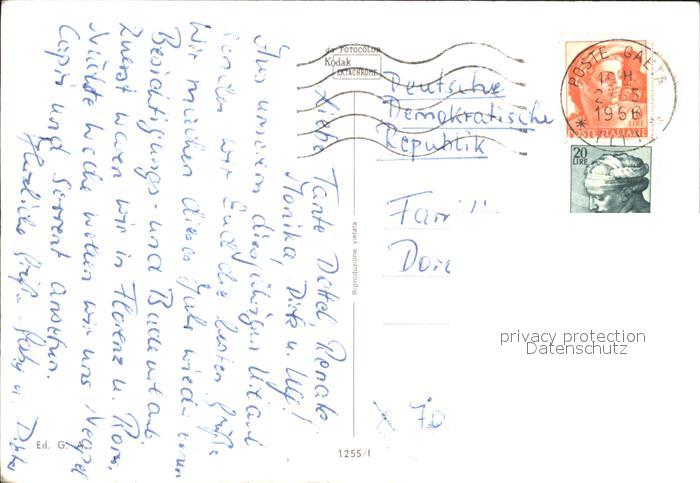 Liebe Tante Dettel, Renate,
Monika, Dirk u. Ulf!
Aus unserem diesjährigen Urlaub
senden wir Euch die besten Grüße.
Wir machen dieses Jahr wieder einen
Besichtigungs- und Badeurlaub.
Zuerst waren wir in Florenz u. Rom.
Nächste Woche wollen wir uns Neapel
Capri und Sorrent ansehen.
Herzliche Grüße
da FOTOCOLOR
Kodak
EKTACHROME
POSTE GAETA
1966
LIRE
POSTE ITALIANE
20
LIRE
Deutsche
Demokratische
Republik
Fam
Riproduzione vietata
privacy protection
Datenschutz
x 70
Ed. G.
1255/I